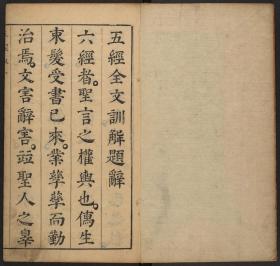 五經全文訓解題辭
六經者聖言之權輿也傳生
束髮受書已來業孳孳而勤
治焉文害辭害㱏聖人之辠